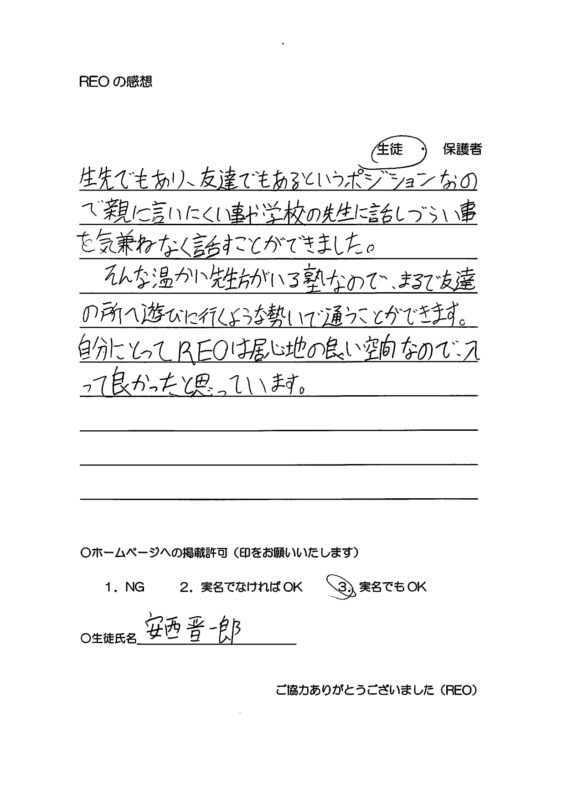 REOの感想
生徒 ・ 保護者
生先でもあり、友達でもあるというポジションなの
で親に言いにくい事や学校の先生に話しづらい事
を気兼ねなく話すことができました。
そんな温かい先生方がいる塾なので、まるで友達
の所へ遊びに行くような勢いで通うことができます。
自分にとってREOは居心地の良い空間なので、入
って良かったと思っています。
○ホームページへの掲載許可（印をお願いいたします）
1．NG 2．実名でなければOK 3．実名でもOK
○生徒氏名 安西晋一郎
ご協力ありがとうございました（REO）